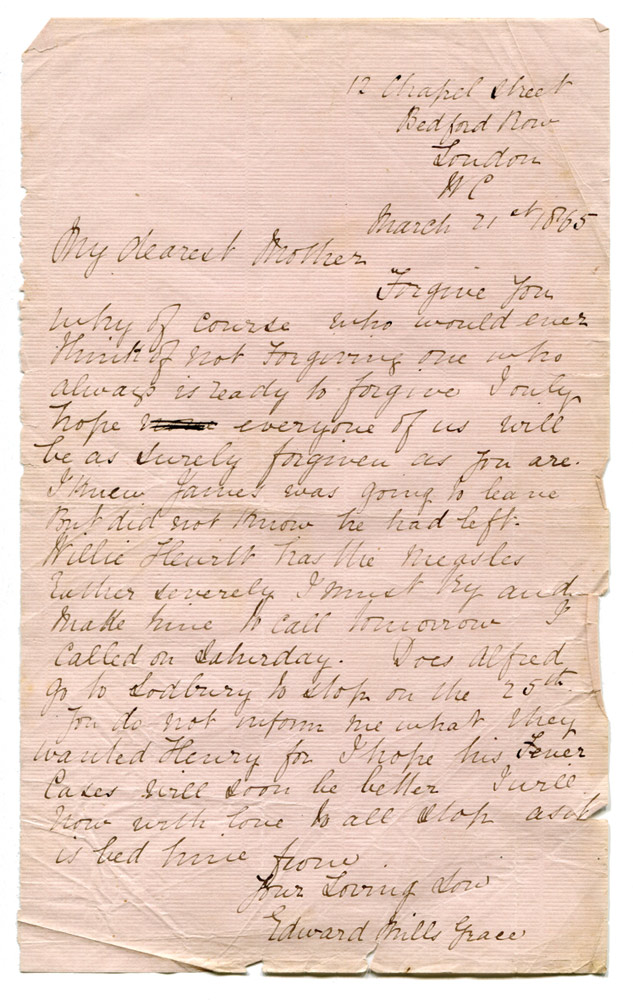 12 Chapel Street
Bedford Row
London
W C
March 21st 1865
My dearest Mother
Forgive you
why of course who would ever
think of not Forgiving one who
always is ready to forgive I only
hope everyone of us will
be as surely forgiven as you are.
I knew James was going to leave
But did not know he had left.
Willie has the Measles
rather severely I must try and
make time to call tomorrow I
called on Saturday. Does Alfred
go to Sodbury to stop on the 25th.
You do not inform me what they
wanted Henry for I hope his Fever
Cases will soon be better I will
now with love to all stop as it
is bed time from
Your Loving Son
Edward Mills Grace